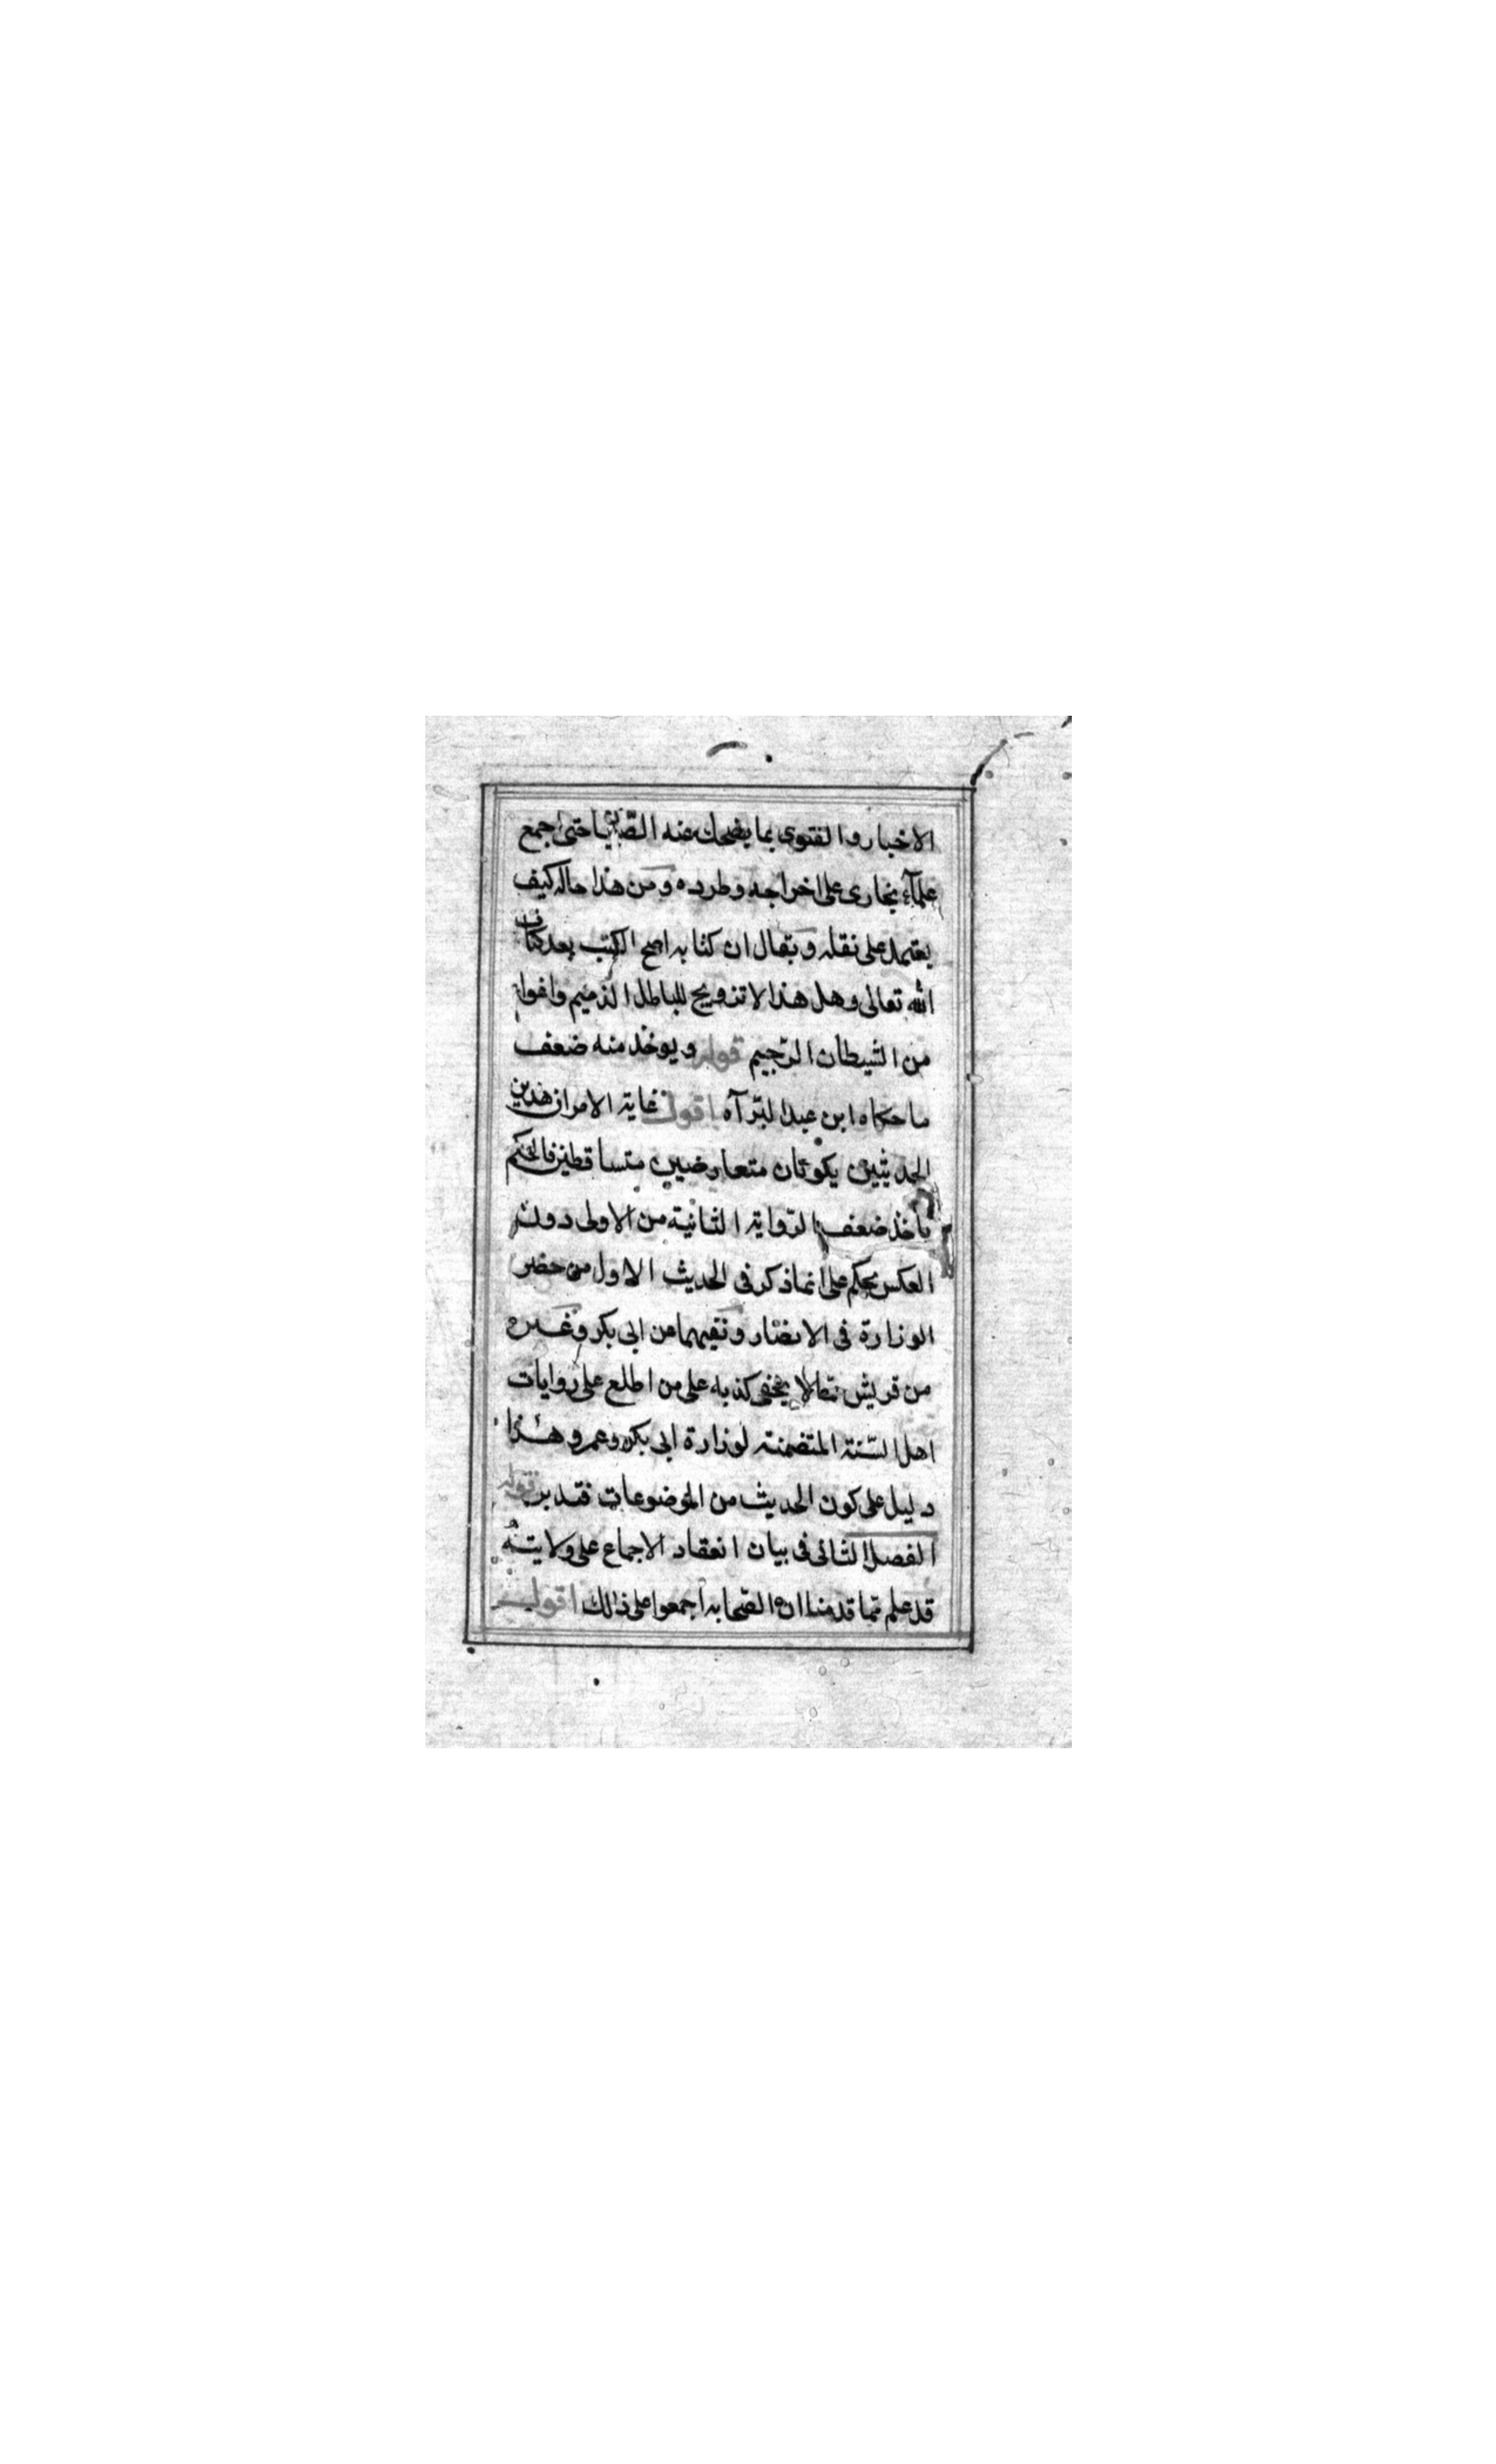 الاخبار والفتوى بما يضحك عنه الصبيان حتى اجمع
علمآء بخارى على اخراجه وطرده ومن هذا حاله كيف
يعتمد على نقله ويقال ان كتابه اصح الكتب بعد كتاب
الله تعالى وهل هذا الا تزويج للباطل الذميم واغوا
من الشيطان الرجيم قوله ويوخذ منه ضعف
ما حكاه ابن عبد البر آه اقول غاية الامر ان هذين
الحديثين يكونان متعارضين متساقطين فالحكم
باخذ ضعف الرواية الثانية من الاولى دون
العكس تحكم على ان ما ذكر فى الحديث الاول من حضر
الوزارة فى الانصار ونفيهما من ابى بكر وغيره
من قريش مما لا يخفى كذبه على من اطلع على روايات
اهل السنة المتضمنة لوزارة ابى بكر وعمر وهذا
دليل على كون الحديث من الموضوعات فتدبر قوله
الفصل الثانى فى بيان انعقاد الاجماع على ولايته
قد علم مما قدمنا ان الصحابه اجمعوا على ذلك اقول